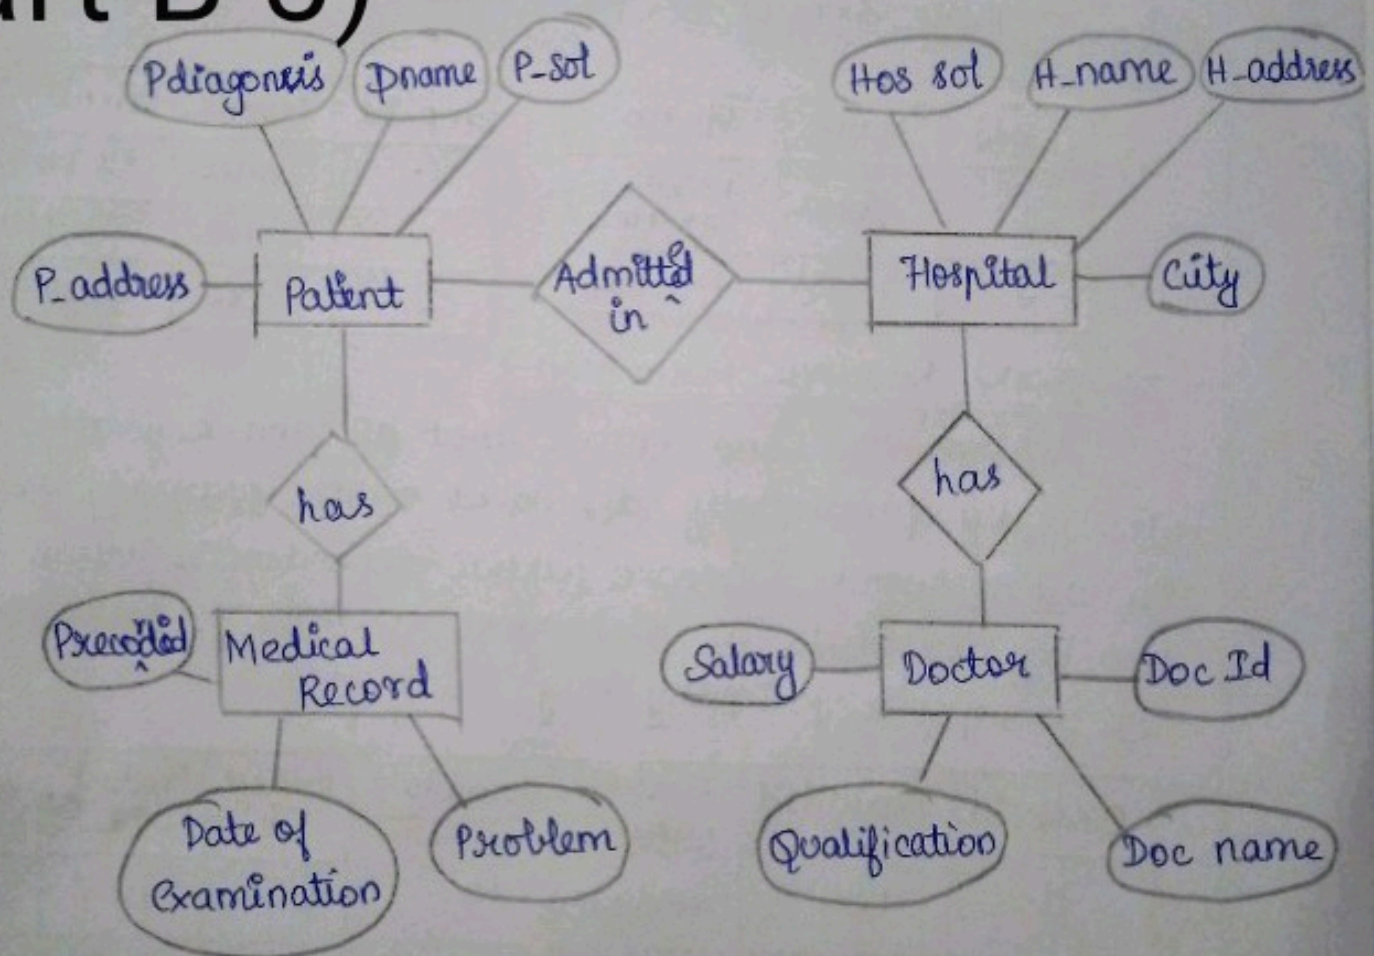 art B 3)
Pdiagonsis
Pname
P_sol
Hos sol
H_name
H_address
P_address
Patient
Admitted
in
Hospital
City
has
has
Medical
Record
Salary
Doctor
Doc Id
Date of
Examination
Problem
Qualification
Doc name